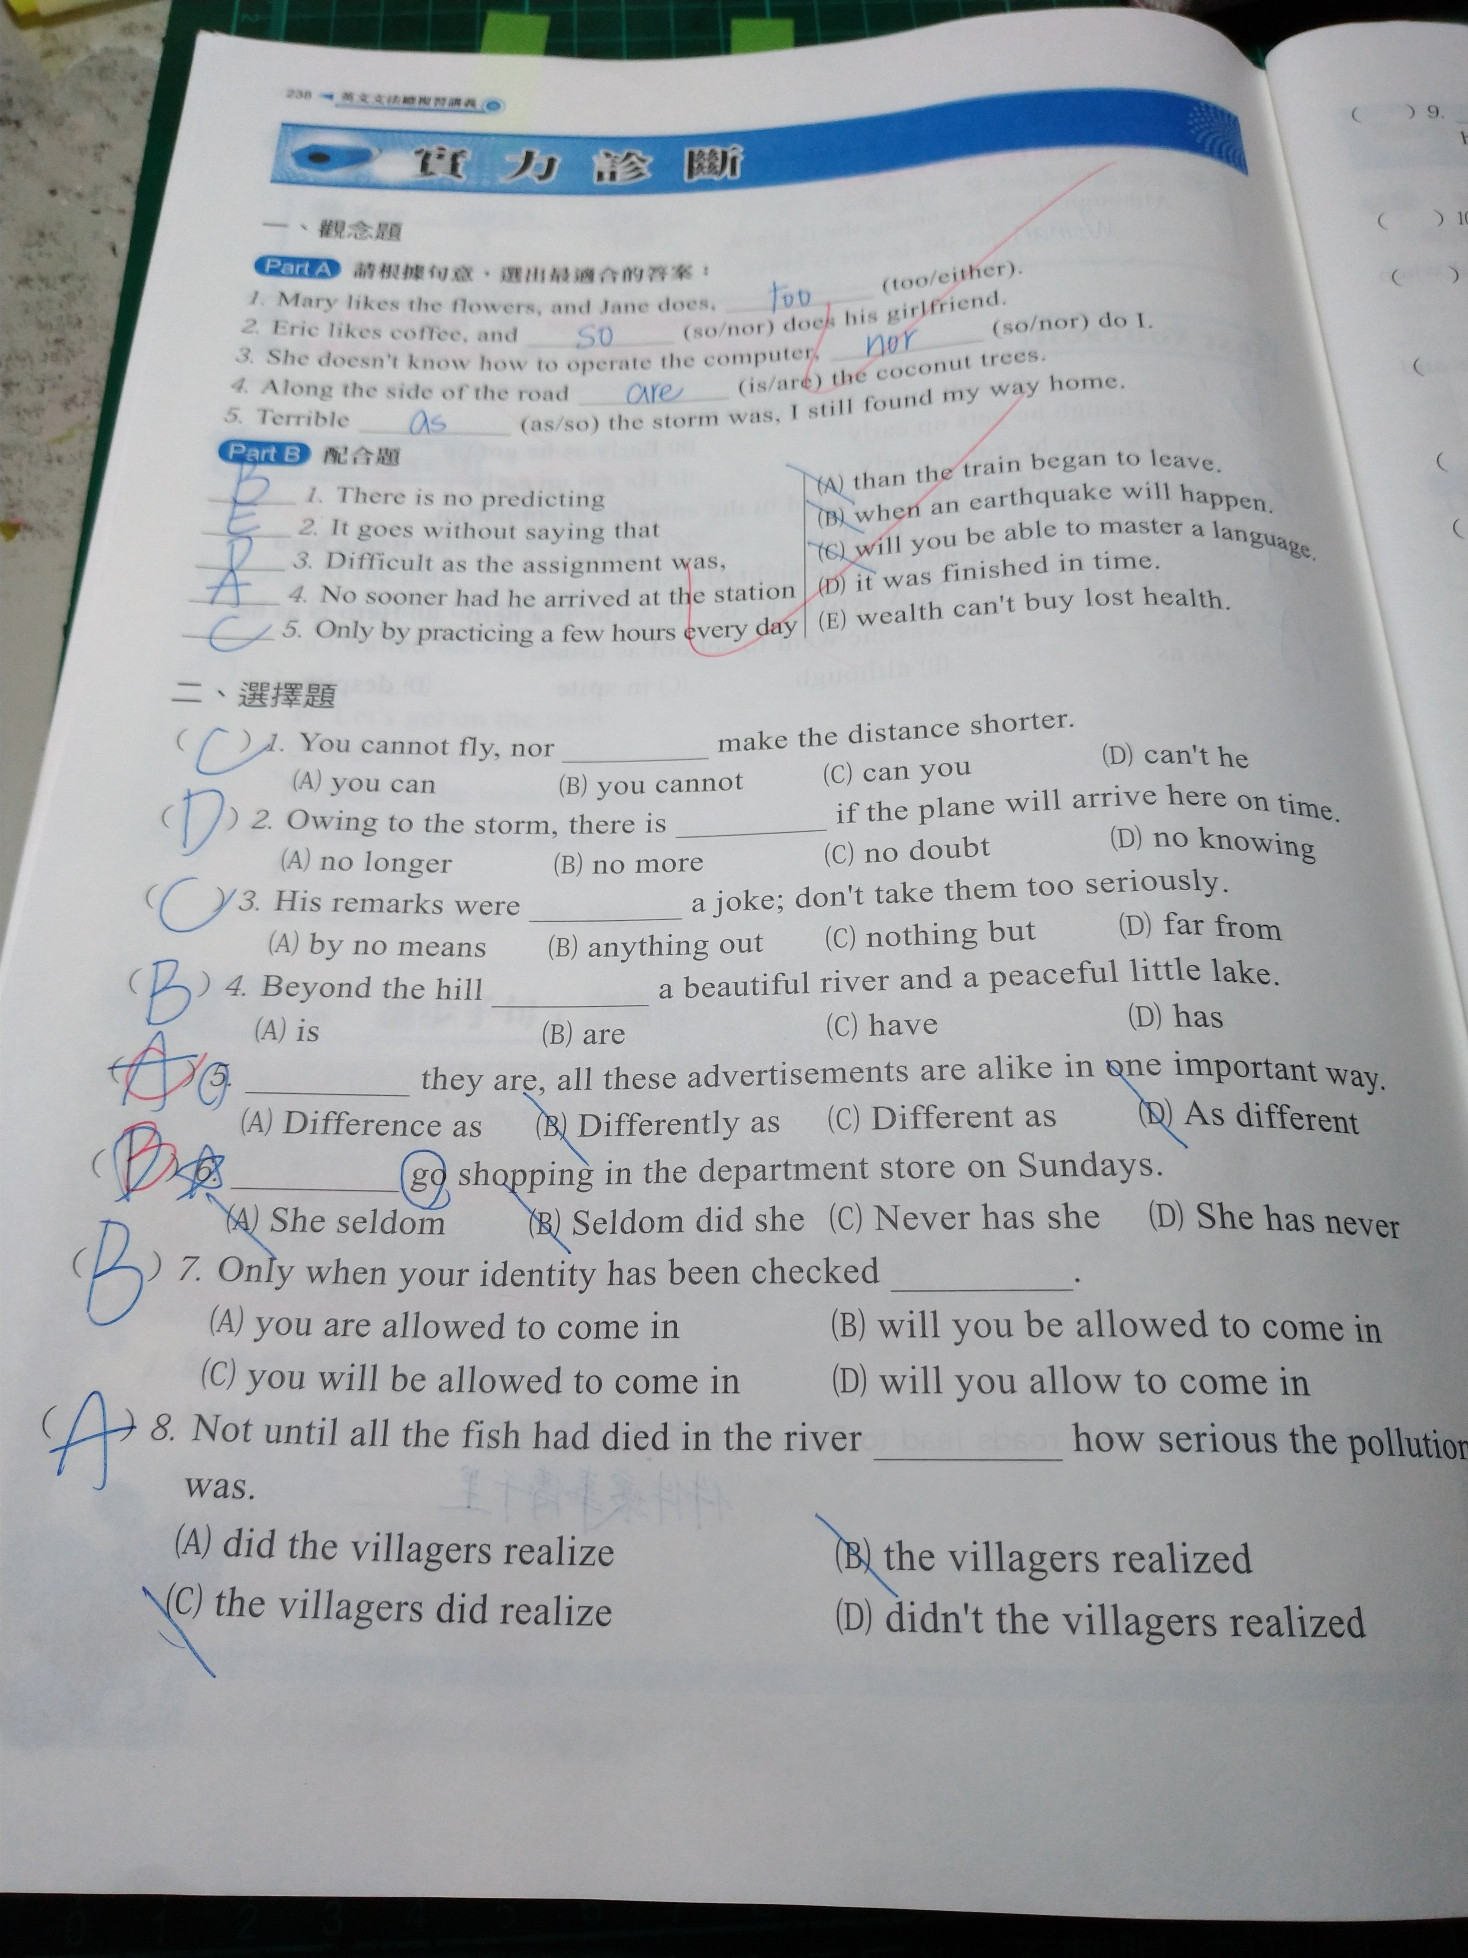 238 英文文法總複習講義
實力診斷
一、觀念題
Part A 請根據句意,選出最適合的答案:
1. Mary likes the flowers, and Jane does, too (too/either).
2. Eric likes coffee, and so (so/nor) does his girlfriend.
3. She doesn't know how to operate the computer, nor (so/nor) do I.
4. Along the side of the road are (is/are) the coconut trees.
5. Terrible as (as/so) the storm was, I still found my way home.
Part B 配合題
B 1. There is no predicting
E 2. It goes without saying that
D 3. Difficult as the assignment was,
A 4. No sooner had he arrived at the station
C 5. Only by practicing a few hours every day
(A) than the train began to leave.
(B) when an earthquake will happen.
(C) will you be able to master a language.
(D) it was finished in time.
(E) wealth can't buy lost health.
二、選擇題
( C ) 1. You cannot fly, nor ________ make the distance shorter.
(A) you can (B) you cannot (C) can you (D) can't he
( D ) 2. Owing to the storm, there is ________ if the plane will arrive here on time.
(A) no longer (B) no more (C) no doubt (D) no knowing
( C ) 3. His remarks were ________ a joke; don't take them too seriously.
(A) by no means (B) anything out (C) nothing but (D) far from
( B ) 4. Beyond the hill ________ a beautiful river and a peaceful little lake.
(A) is (B) are (C) have (D) has
( A ) C 5. ________ they are, all these advertisements are alike in one important way.
(A) Difference as (B) Differently as (C) Different as (D) As different
( B ) A 6. ________ go shopping in the department store on Sundays.
(A) She seldom (B) Seldom did she (C) Never has she (D) She has never
( B ) 7. Only when your identity has been checked ________.
(A) you are allowed to come in (B) will you be allowed to come in
(C) you will be allowed to come in (D) will you allow to come in
( A ) 8. Not until all the fish had died in the river ________ how serious the pollution
was.
(A) did the villagers realize (B) the villagers realized
(C) the villagers did realize (D) didn't the villagers realized
( ) 9.
( ) 10
( )
( )
( )
( )